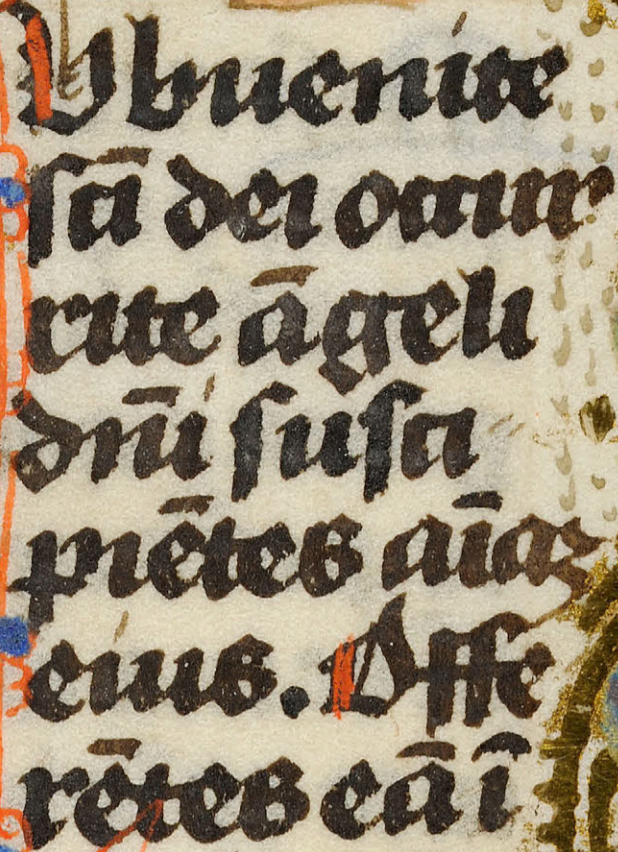 Ubuenite
sc̄i dei occur
rite āgeli
dn̄i susci
piētes aīaꝫ
eius. Offe
rētes eā ī